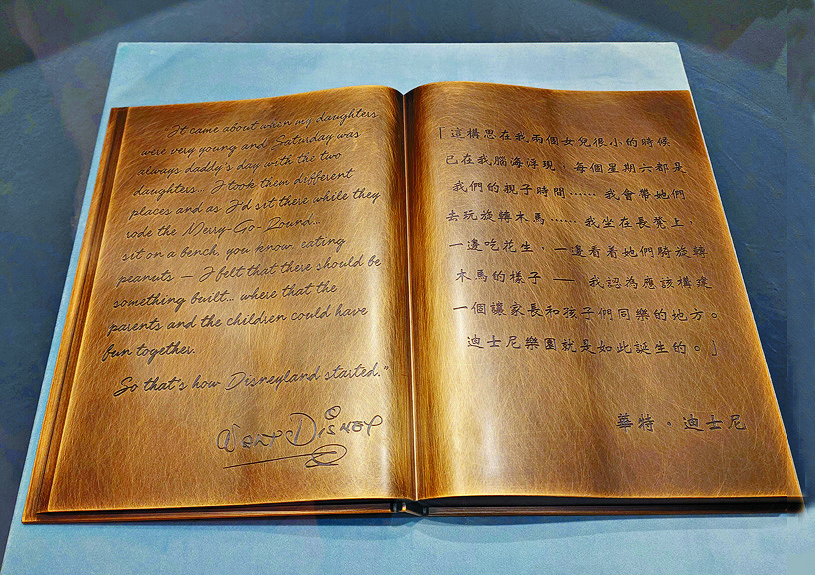 It came about when my daughters
were very young and Saturday was
always daddy's day with the two
daughters... I took them different
places and as I'd sit there while they
rode the Merry-Go-Round...
sit on a bench, you know, eating
peanuts — I felt that there should be
something built... where that the
parents and the children could have
fun together.
So that's how Disneyland started."
Walt Disney
「這構思在我兩個女兒很小的時候
已在我腦海浮現，每個星期六都是
我們的親子時間⋯⋯ 我會帶她們
去玩旋轉木馬⋯⋯ 我坐在長凳上，
一邊吃花生，一邊看着她們騎旋轉
木馬的樣子 —— 我認為應該構建
一個讓家長和孩子們同樂的地方。
迪士尼樂園就是如此誕生的。」
華特。迪士尼